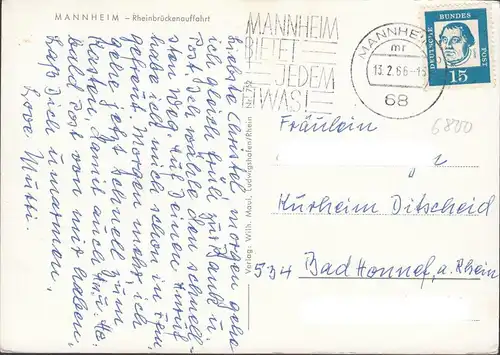 MANNHEIM – Rheinbrückenauffahrt
Liebste Christel, morgen gehe
ich gleich früh zur Bank u.
Post. Ich wähle den schnell-
sten Weg. Auf Deinen Anruf
habe ich mich schon
gefreut. Morgen mehr, ich
gehe jetzt schnell zum
Kasten, damit auch
bald Post von mir haben.
Laß Dich umarmen,
Love Mutti.
Verlag: Wilh. Maul, Ludwigshafen/Rhein Nr.
MANNHEIM
BIETET
JEDEM
ETWAS!
MANNHEIM
mr
13.2.66-15
68
DEUTSCHE BUNDES POST
15
6800
Fräulein
Kurheim Ditscheid
534 Bad Honnef, a. Rhein